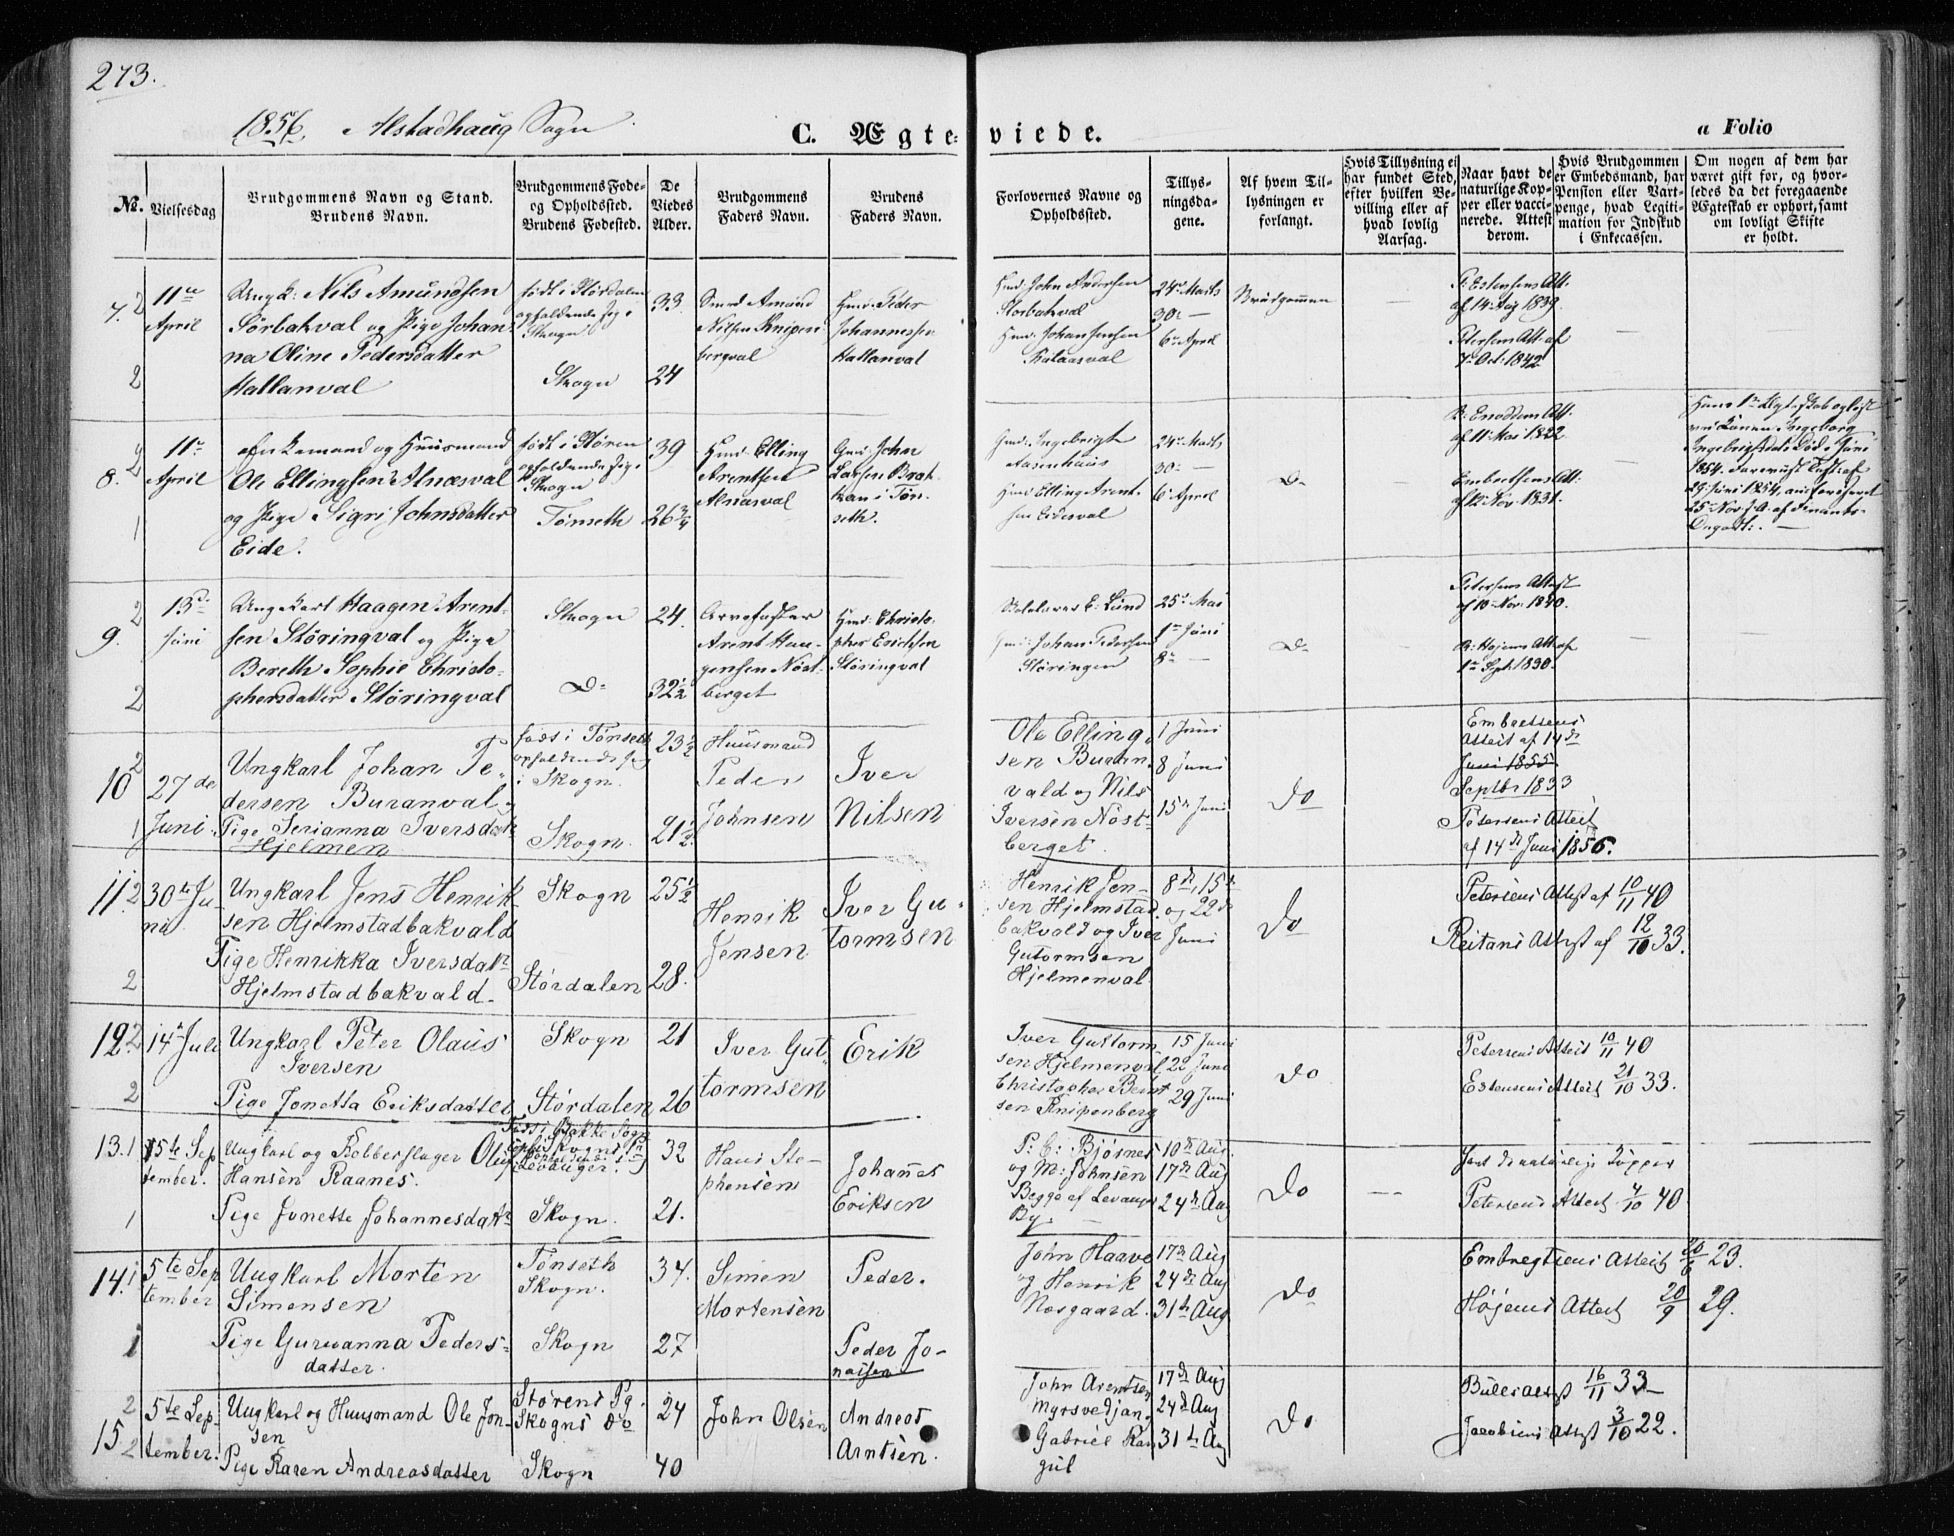 273.
1856. Alstadhaug Sogn
C. Ægte-
viede.
a Folio
No.
Vielsesdag
Brudgommens Navn og Stand.
Brudens Navn.
Brudgommens Føde-
og Opholdssted.
Brudens Fødested.
De
Viedes
Alder.
Brudgommens
Faders Navn.
Brudens
Faders Navn.
Forlovernes Navne og
Opholdssted.
Tillys-
ningsda-
gene.
Af hvem Til-
lysningen er
forlangt.
Hvis Tillysning ei
har fundet Sted,
efter hvilken Be-
villing eller af
hvad lovlig
Aarsag.
Naar havt de
naturlige Kop-
per eller vacci-
nerede. Attest
derom.
Hvis Brudgommen
er Embedsmand, har
Pension eller Vart-
penge, hvad Legiti-
mation for Indskud
i Enkecassen.
Om nogen af dem har
været gift for, og hvor-
ledes da det foregaaende
Ægteskab er ophørt, samt
om lovligt Skifte
er holdt.
7. 2
2
11te
April
Ungk: Nils Amundsen
Sørbakval og Pige Johan
na Oline Pedersdatter
Hallanval
født i Størdalen
opholdende sig i
Skogn
Skogn
33.
24
Amund
Nilsen Knipen-
bergval
Hmd. Peder
Johannessen
Hallanval
Hmd. John Andersen
Storbakval
Hmd. Johan Jensen
24de Marts
30- —
6te April
Brudgommen
P. Estensens Att.
af 14 Aug 1839.
Petersens Att. af
7de Oct: 1842
8. 2
1
11te
April
Enkemand og Huusmand
Ole Ellingsen Alnæsval
og Pige Sigri Johnsdatter
Eide.
født i Støren
opholdende sig i
Skogn
Tønseth
39
26 3/4
Hmd. Elling
Arentsen
Alnæsval
Gmd. John
Larsen Brat-
i Tøn-
seth.
Hmd. Ingebrigt
Aasenhuus
Hmd Elling Arent-
sen Eidesval
24de Marts
30- —
6te April
Do
Att.
af 11 Mai 1822
Embretsens Att:
af 12 Nov. 1831.
Hans 1te Ægteskab opløst
ved Konen Ingeborg
Død i Juni
1854.
29 Juni 1854,
25 Nov
9. 2
2
13de
Juni
Ungkarl Haagen Arent-
sen Støringval og Pige
Bereth Sophie Christo-
phersdatter Støringval
Skogn
Do
24.
32 1/2
Arent Haa-
gensen Nøst-
berget
Hmd. Christo-
pher Erichsen
Støringval
E: Lund
Johan Pedersen
Støringen
25de Mai
1te Juni
8de —
Do
Petersens Attest
af 10 Nov. 1840.
R: Højems Att. af
1te Sept: 1830.
10 2
1
27de
Juni.
Ungkarl Johan Pe-
dersen Buranval og
Pige Serianna Iversdatr
Hjelmen
føds i Tønseth
opholdende sig
i Skogn.
Skogn.
23 1/2
21 1/2
Huusmand
Peder
Johnsen
Iver
Nilsen
Ole Elling-
sen Buran-
vald og Nils
Iversen Nøst-
berget.
1 Juni
8 Juni
15de Juni
Do
Embretsens
Attest af 14de
Juni 1855
Septbr 1833
Petersens Attest
af 14de Juni 1856.
11. 2
2
30te Ju
ni
Ungkarl Jens Henrik-
sen Hjelmstadbakvald
Pige Henrikka Iversdatr
Hjelmstadbakvald.
Skogn
Størdalen
25 1/2
28.
Henrik
Jensen
Iver Gu-
tormsen
Henrik Jen-
sen Hjelmstad
bakvald og Iver
Gutormsen
Hjelmenval
8de, 15de
og 22de
Juni
Do
Petersens Attest af 10/11 40
Reitans Attest af 12/10 33.
12. 2
2
14de Juli
Ungkarl Peter Olaus
Iversen
Pige Jonetta Eriksdatter
Skogn
Størdalen
21
26
Iver Gut-
tormsen
Erik
Iver Guttorm-
sen Hjelmenval
Christopher Bernt
sen Knipenberg
15 Juni
22 Juni
29 Juni
Do
Petersens Attest 10/11 40
Estensens Attest 21/10 33.
13. 1
1
15te Sep
tember.
Ungkarl og Kobberslager Oluf
Hansen Raanes.
Pige Jonette Johannesdatr
Føds i Bakke Sogn
Levanger.
Skogn.
32
21.
Hans Ste-
phensen
Johannes
Eriksen
P: C: Bjøsnes
og M: Johnsen
Begge af Levanger
By.
10de Aug.
17de Aug
24de Aug
Do
Havt de naturlige Kopper
Petersens Attest 4/10 40
14. 1
1
5te Sep
tember
Ungkarl Morten
Simensen
Pige Gurianna Peders-
datter.
Tønseth
Skogn.
Skogn
34.
27
Simen
Mortensen
Peder.
Peder Jo-
nassen
John Haave
og Henrik
Nosgaard.
17de Aug
24de Aug
31te Aug
Do
Embregtsens Attest 20/6 23.
Højems Attest 20/9 29.
15. 2
2
5te Sep-
tember.
Ungkarl og Huusmand Ole Jon-
sen
Pige Karen Andreasdatter
Størens Pg.
Skogns do
Skogn
24
40
John Olsen
Andreas
Arntsen.
John Arentsen
Myrsvedjan.
Gabriel Ram
gul
17de Aug
24de Aug
31te Aug
Do
Bulls Attest 16/11 33
Jacobsens Attest 3/10 22.